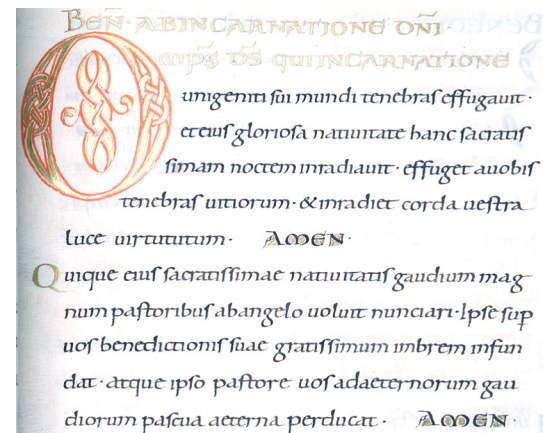 BEN̄· ABINCARNATIONE DNĪ
OMPS̄ D̄S QUIINCARNATIONE
unigeniti sui mundi tenebras effugauit·
eteius gloriosa natiuitate hanc sacratis
simam noctem inradiauit· effuget auobis
tenebras uitiorum· &inradiet corda uestra
luce uirtututum· AMEN·
Quique eius sacratissimae natiuitatis gaudium mag
num pastoribus abangelo uoluit nunciari· Ipse sup̄
uos benedictionis suae gratissimum imbrem infun
dat· atque ipso pastore uos adaeternorum gau
diorum pascua aeterna perducat· AMEN·